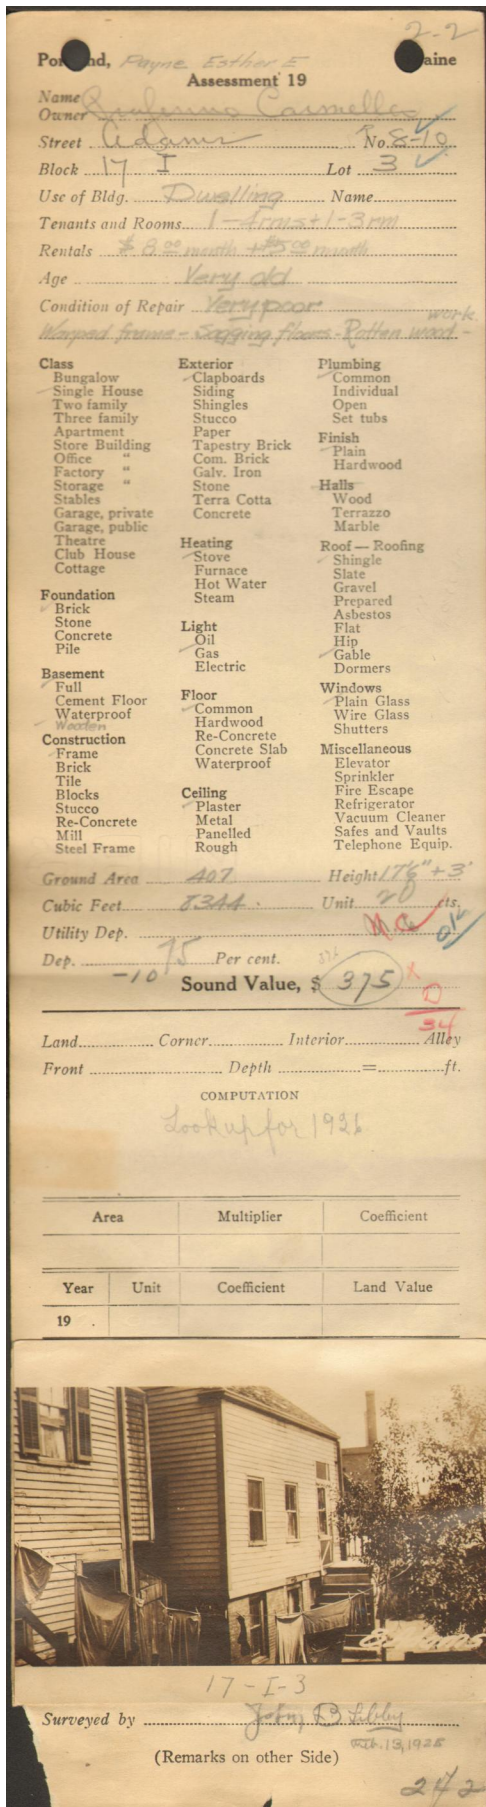 2-2
Portland, Payne Esther E Maine
Assessment 19
Name
Owner Carmella
Street Adams R No. 8-10
Block 17 I Lot 3
Use of Bldg. Dwelling Name
Tenants and Rooms 1-4rms+1-3rm
Rentals $8.00 month + $5.00 month
Age Very old
Condition of Repair Very poor
Warped frame - Sagging floors - Rotten wood-work.
Class
Bungalow
Single House
Two family
Three family
Apartment
Store Building
Office "
Factory "
Storage "
Stables
Garage, private
Garage, public
Theatre
Club House
Cottage
Foundation
Brick
Stone
Concrete
Pile
Basement
Full
Cement Floor
Waterproof
Wooden
Construction
Frame
Brick
Tile
Blocks
Stucco
Re-Concrete
Mill
Steel Frame
Exterior
Clapboards
Siding
Shingles
Stucco
Paper
Tapestry Brick
Com. Brick
Galv. Iron
Stone
Terra Cotta
Concrete
Heating
Stove
Furnace
Hot Water
Steam
Light
Oil
Gas
Electric
Floor
Common
Hardwood
Re-Concrete
Concrete Slab
Waterproof
Ceiling
Plaster
Metal
Panelled
Rough
Plumbing
Common
Individual
Open
Set tubs
Finish
Plain
Hardwood
Halls
Wood
Terrazzo
Marble
Roof — Roofing
Shingle
Slate
Gravel
Prepared
Asbestos
Flat
Hip
Gable
Dormers
Windows
Plain Glass
Wire Glass
Shutters
Miscellaneous
Elevator
Sprinkler
Fire Escape
Refrigerator
Vacuum Cleaner
Safes and Vaults
Telephone Equip.
Ground Area 407 Height 17'6" + 3'
Cubic Feet 8344 Unit 20 cts.
Utility Dep. N.C. OK
Dep. 75 Per cent.
-10
Sound Value, $ 375
X
D
34
Land Corner Interior Alley
Front Depth = ft.
COMPUTATION
Look up for 1926
Area Multiplier Coefficient
Year Unit Coefficient Land Value
19
17-I-3
Surveyed by John B Libby
Feb. 13, 1925
(Remarks on other Side)
242